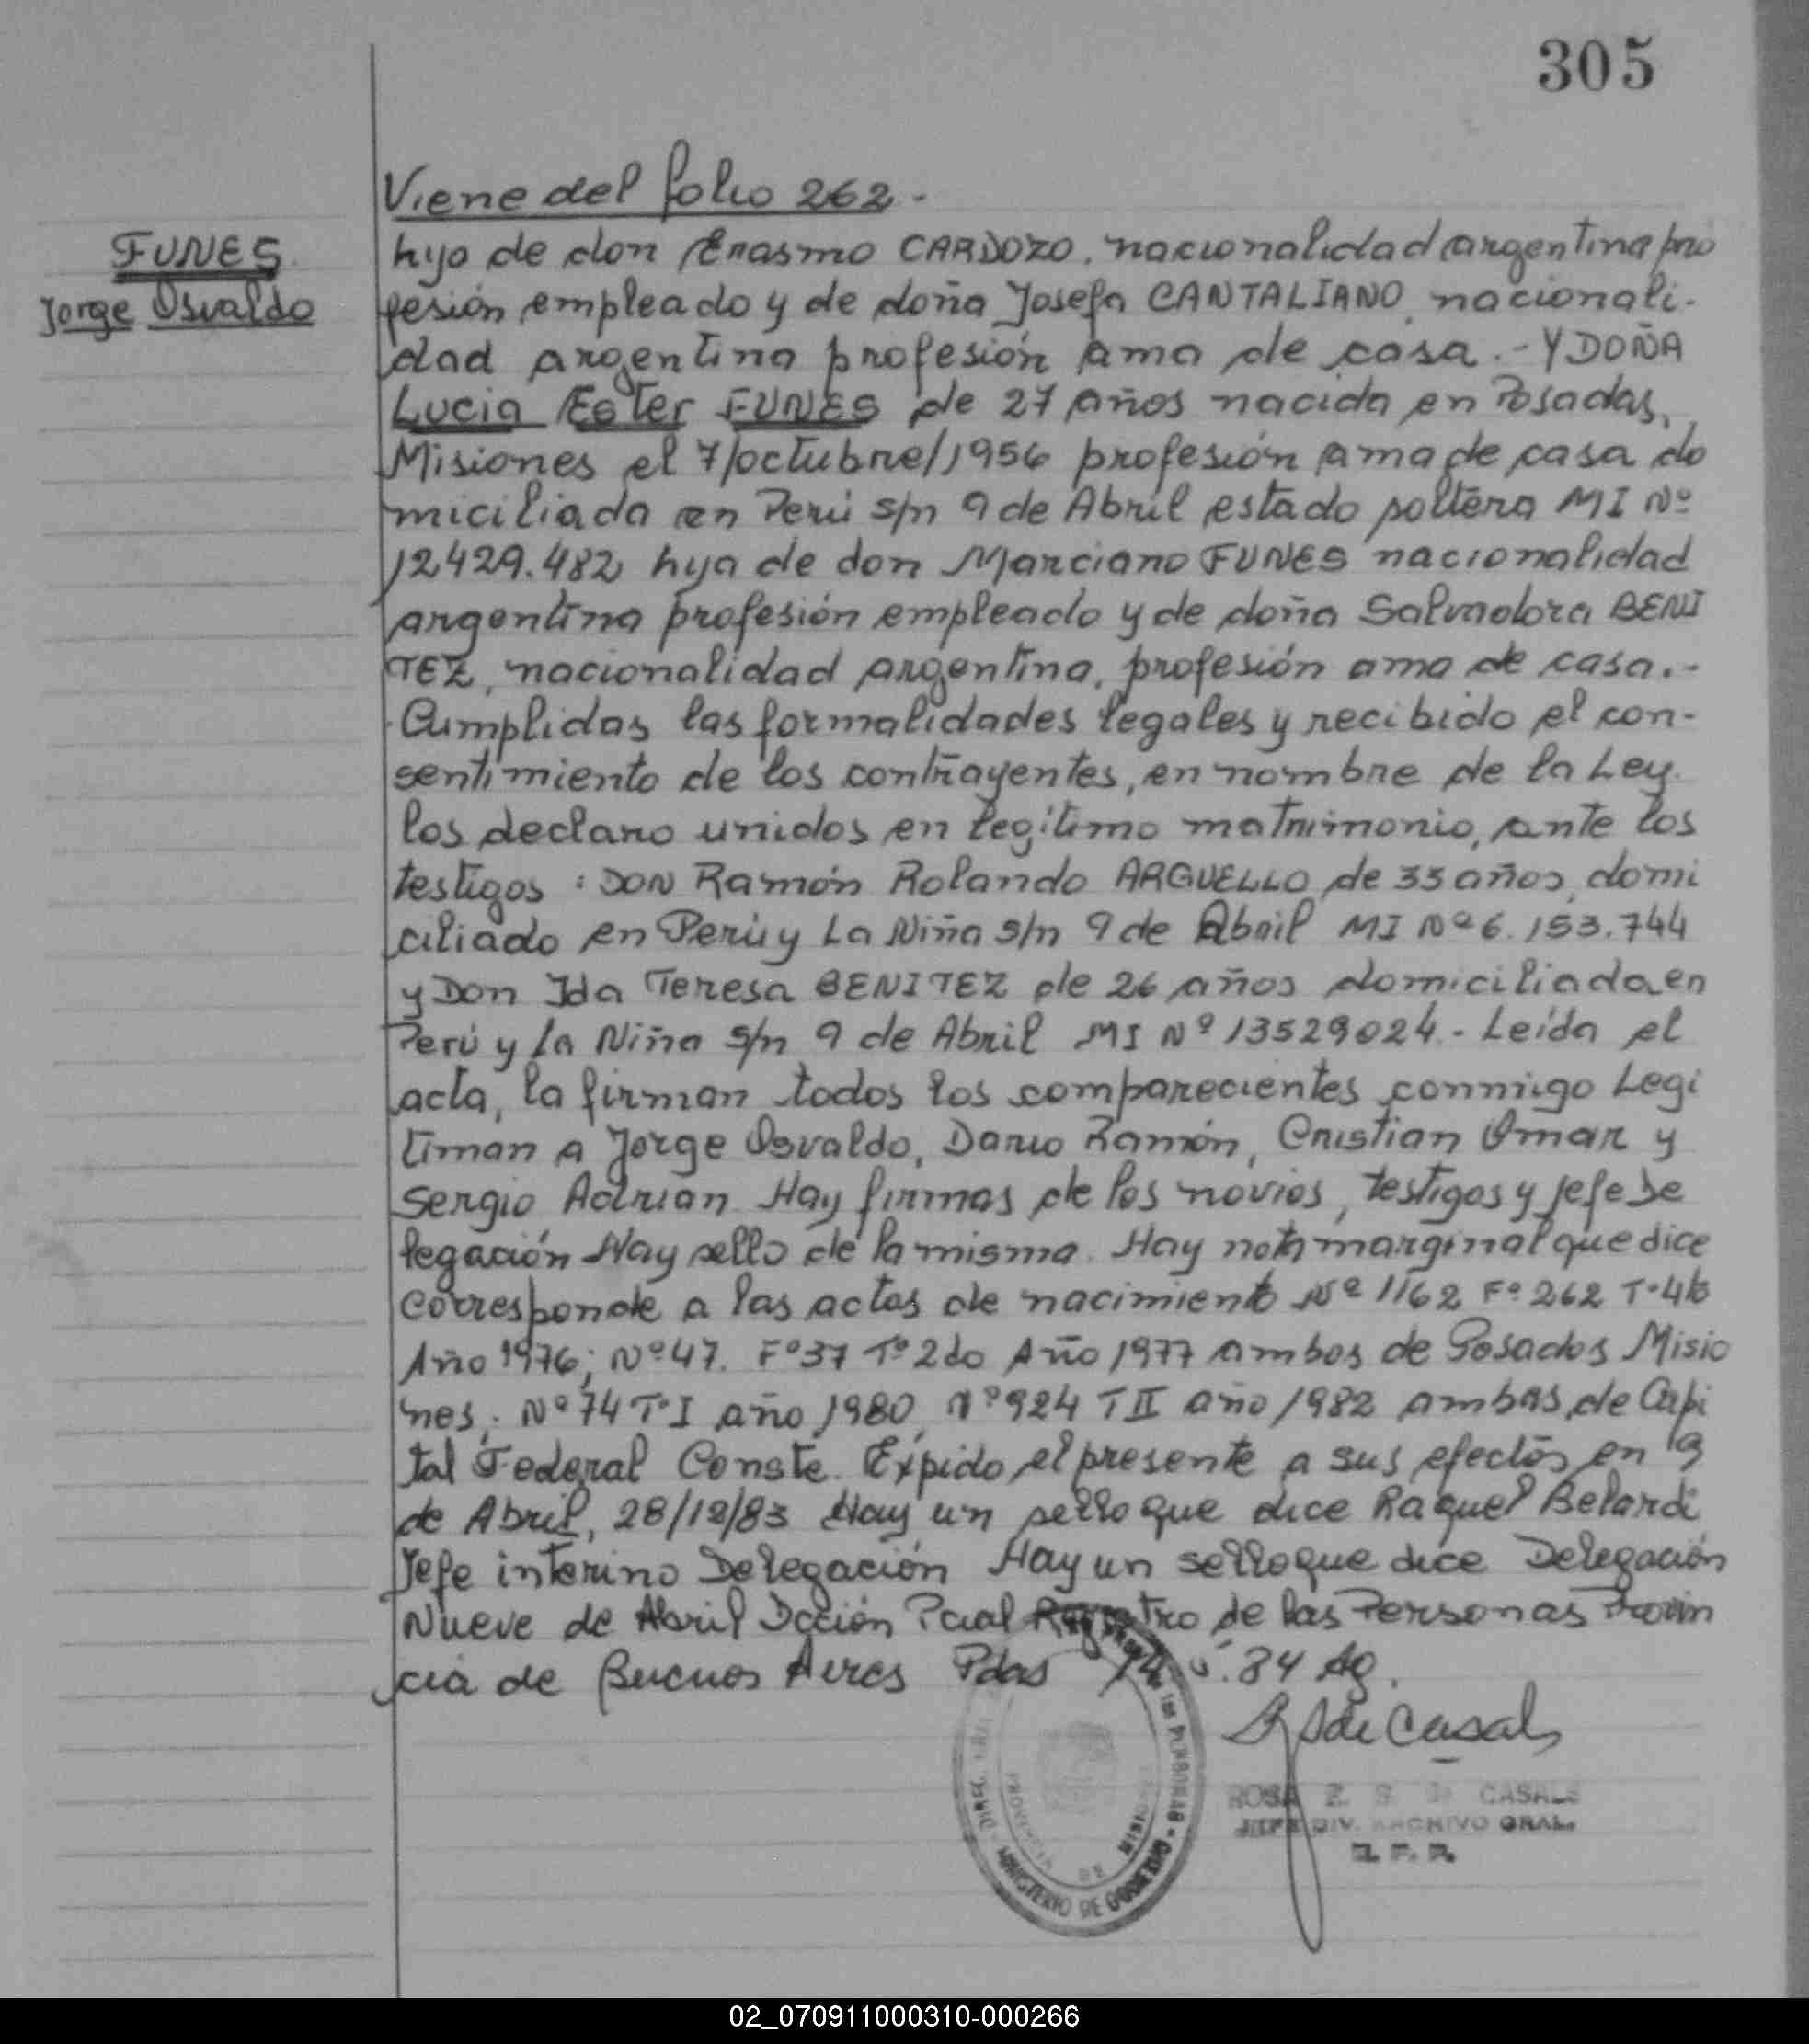 305
Viene del folio 262.-
FUNES
Jorge Osvaldo
hijo de don Erasmo CARDOZO, nacionalidad argentina pro
fesión empleado y de doña Josefa CANTALIANO, nacionali-
dad argentina profesión ama de casa.- Y DOÑA
Lucia Ester FUNES de 27 años nacida en Posadas,
Misiones el 7/octubre/1956 profesión ama de casa do
miciliada en Perú s/n 9 de Abril estado soltera MI Nº
12429.482 hija de don Marciano FUNES nacionalidad
argentina profesión empleado y de doña Salvadora BENI
TEZ, nacionalidad argentina, profesión ama de casa.-
Cumplidas las formalidades legales y recibido el con-
sentimiento de los contrayentes, en nombre de la Ley
los declaro unidos en legítimo matrimonio, ante los
testigos: DON Ramón Rolando ARGUELLO de 33 años, domi
ciliado en Perú y La Niña s/n 9 de Abril MI Nº 6.153.744
y Don Ida Teresa BENITEZ de 26 años domiciliada en
Perú y la Niña s/n 9 de Abril MI Nº 13529024.- Leída el
acta, la firman todos los comparecientes conmigo Legi
timan a Jorge Osvaldo, Dario Ramón, Cristian Omar y
Sergio Adrian Hay firmas de los novios, testigos y jefe De
legación Hay sello de la misma. Hay nota marginal que dice
corresponde a las actas de nacimiento Nº 1162 Fº 262 Tº 4to
Año 1976; Nº 47. Fº 37 Tº 2do Año 1977 ambos de Posadas Misio
nes; Nº 74 Tº I año 1980, Nº 924 T II año 1982 ambas de Capi
tal Federal Conste. Expido el presente a sus efectos en 9
de Abril, 28/12/83 Hay un sello que dice Raquel Belardi
Jefe interino Delegación Hay un sello que dice Delegación
Nueve de Abril Dción Pcial Registro de las Personas Provin
cia de Buenos Aires Pdas 84
de Casals
ROSA E. S. de CASALS
JEFE DIV. ARCHIVO GRAL.
R. P. P.
las PERSONAS - MINISTERIO DE GOBIERNO
PROVINCIA DE MISIONES
02_070911000310-000266